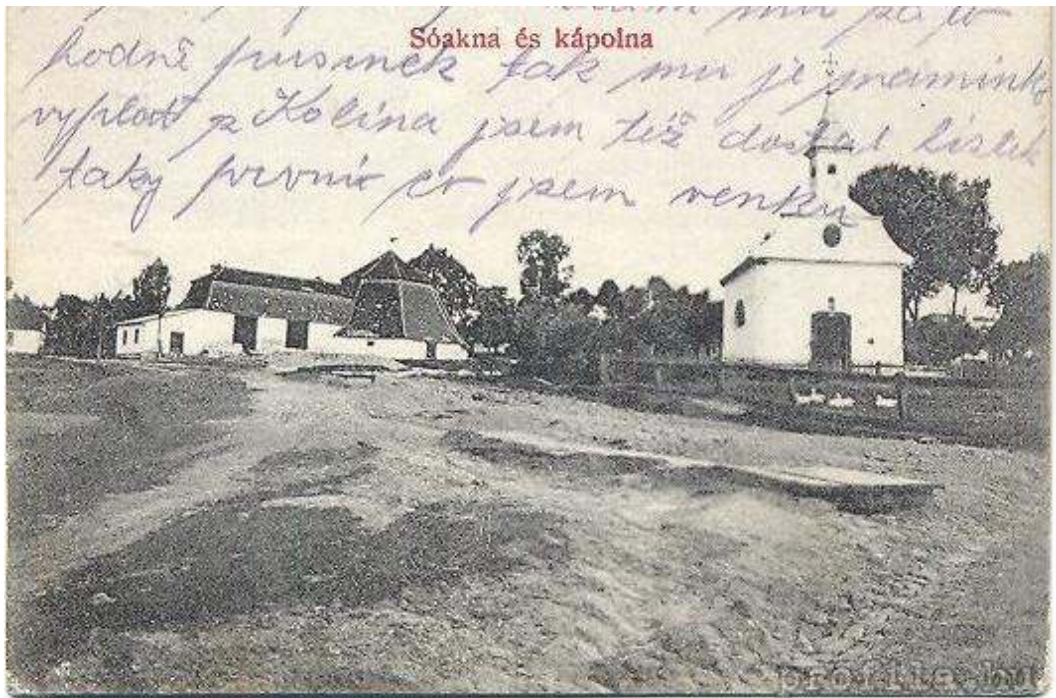 Sóakna és kápolna
hodně pusinek tak mu je maminko
vyplať z Kolína jsem též dostal lístek
taky první co jsem venku